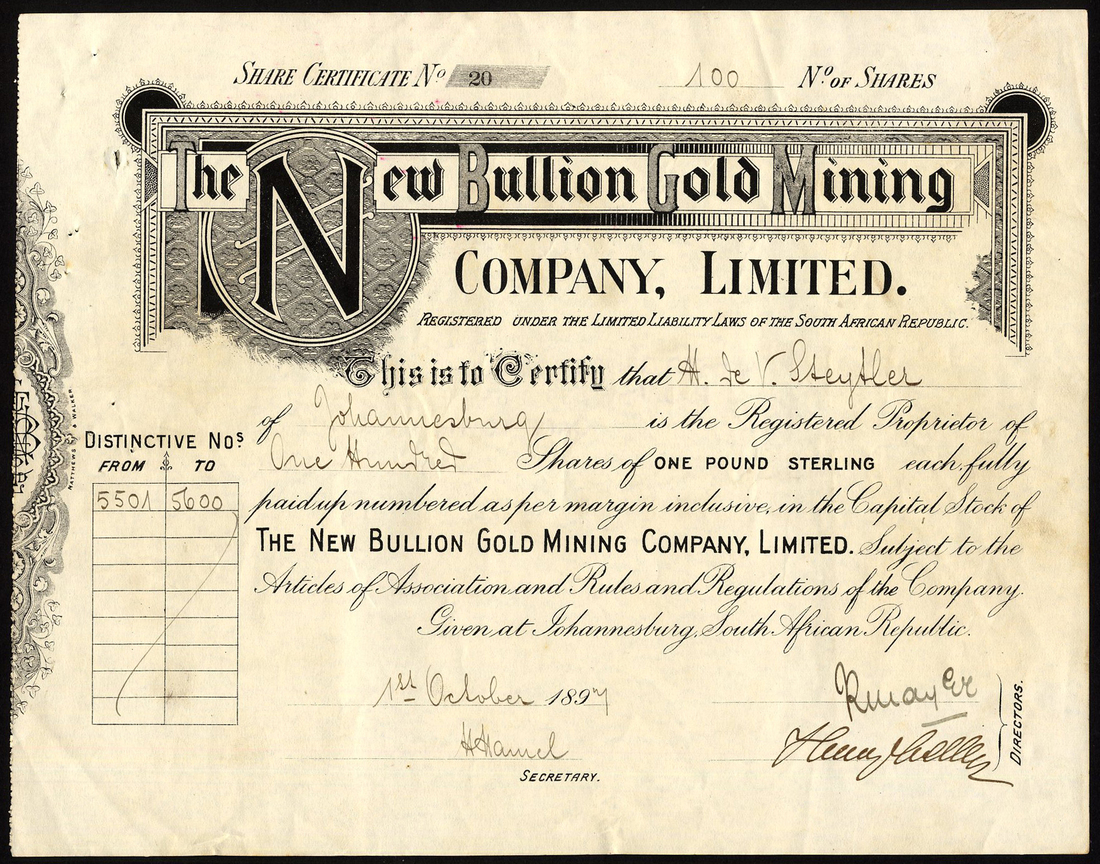 SHARE CERTIFICATE No 20 100 No OF SHARES
The New Bullion Gold Mining
COMPANY, LIMITED.
REGISTERED UNDER THE LIMITED LIABILITY LAWS OF THE SOUTH AFRICAN REPUBLIC.
This is to Certify that H. de V. Steytler
of Johannesburg is the Registered Proprietor of
One Hundred Shares of ONE POUND STERLING each, fully
paid up numbered as per margin inclusive, in the Capital Stock of
THE NEW BULLION GOLD MINING COMPANY, LIMITED. Subject to the
Articles of Association and Rules and Regulations of the Company.
Given at Johannesburg, South African Republic.
DISTINCTIVE Nos
FROM TO
5501 5600
1st October 1897
SECRETARY.
DIRECTORS.
& WALKER